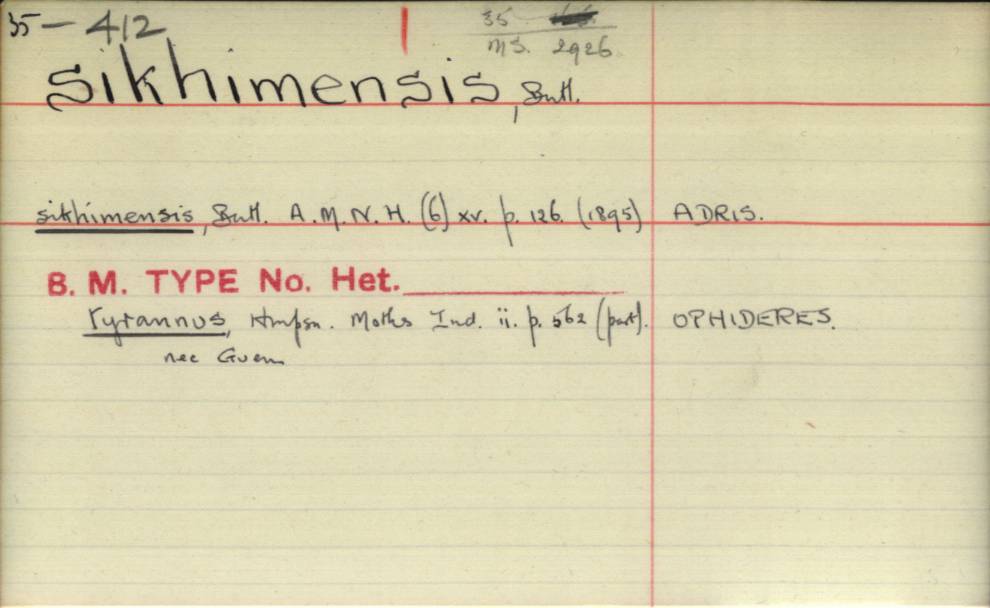 35 — 412
35
MS. 2926
sikhimensis, Butl.
sikhimensis, Butl. A.M.N.H. (6) xv. p. 126. (1895) ADRIS.
B. M. TYPE No. Het.
tyrannus, Hmpsn. Moths Ind. ii. p. 562 (part). OPHIDERES.
nec Guen